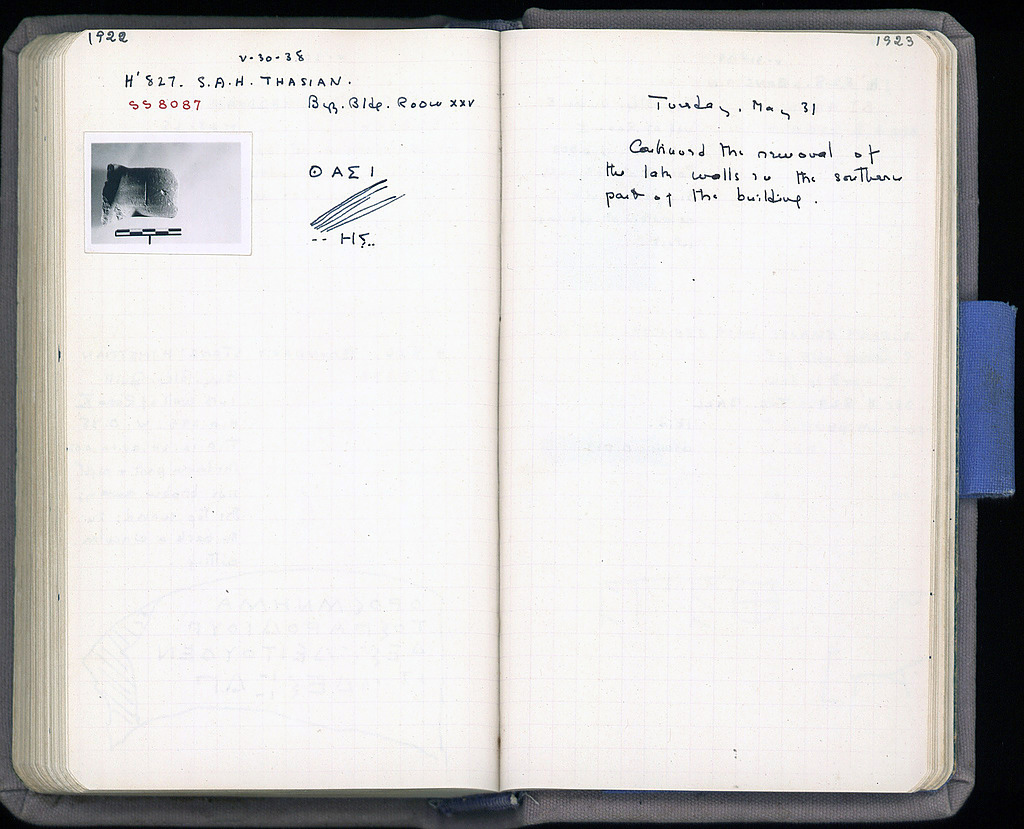 1922
V-30-38
H' 827. S.A.H. THASIAN.
SS 8087
Byz. Bldg. Room XXV
ΘΑΣΙ
-- Ης..
1923
Tuesday, May 31
Continued the removal of
the late walls in the southern
part of the building.